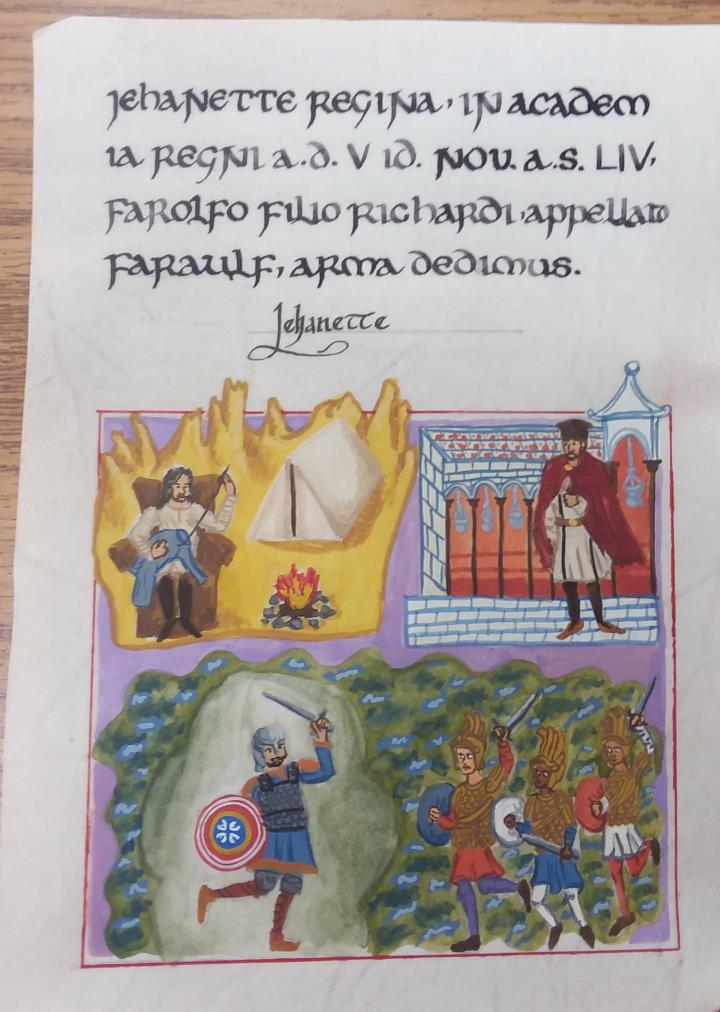 Jehanette Regina, in academ
ia Regni a.d. V id. Nov. a.s. LIV,
Farolfo filio Richardi, appellato
Faraulf, arma dedimus.
Jehanette